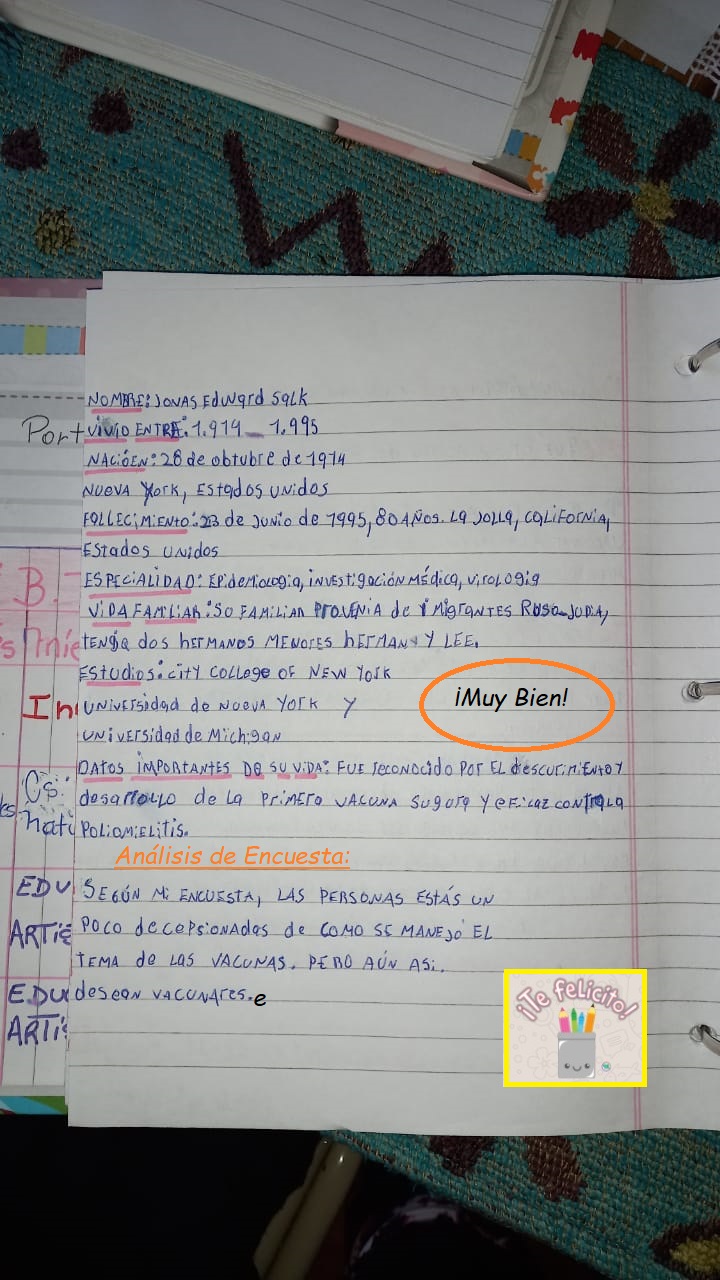 NOMBRE: JONAS EdWard Salk
VIVIO ENTRE: 1.914 _ 1.995
NACIÓEN: 28 de obtubre de 1914
NUEVA York, ESTAdos UNIdos
FALLECIMIENTO: 23 de JUNIO de 1995, 80 AÑOS. LA JOLLA, CALIFORNIA,
EStados UNIdos
ESPECIALIDAD: EPidEMiología, iNVEStigACiÓN MÉdica, VirologiA
VIDA FAMILIAR: SU FAMILIAR PROVENIA de iMigRANTES RUSO-JUDIA,
TENÍA dos hERMANOS MENORES hERMAN Y LEE.
EStudios: CITY COLLEGE OF NEW YORK
UNIVERSIdad de NUEVA YORK Y
UNIVERSIdad de MICHIgAN
DATOS IMPORTANTES DE SU VIDA: FUE reCONOCIDO POR EL dESCURiMIENTO Y
desarrollo de la PRIMERA VACUNA SUgURA Y EFICAZ CONTRA LA
POLIOMIELITIS.
Análisis de Encuesta:
SEGÚN Mi ENCUESTA, LAS PERSONAS ESTÁS UN
POCO dECEPSIONADAS de COMO SE MANEJÓ EL
TEMA de LAS VACUNAS. PERO AÚN ASÍ.
desean VACUNARES.e
¡Muy Bien!
¡Te felicito!
Port
B.
Cs.
natu
EDU
ARTiS
E.DU
ARTiS